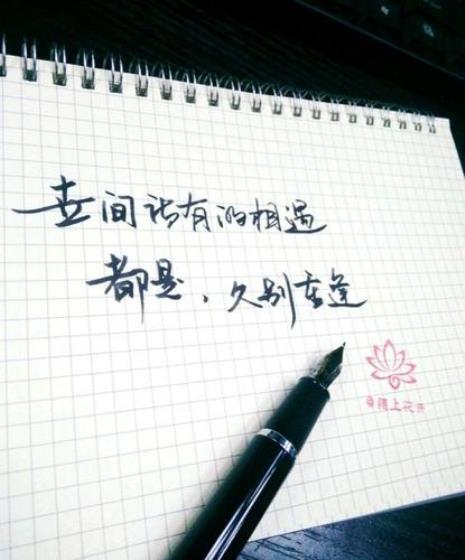 世间所有的相遇
都是,久别重逢
@陌上花开